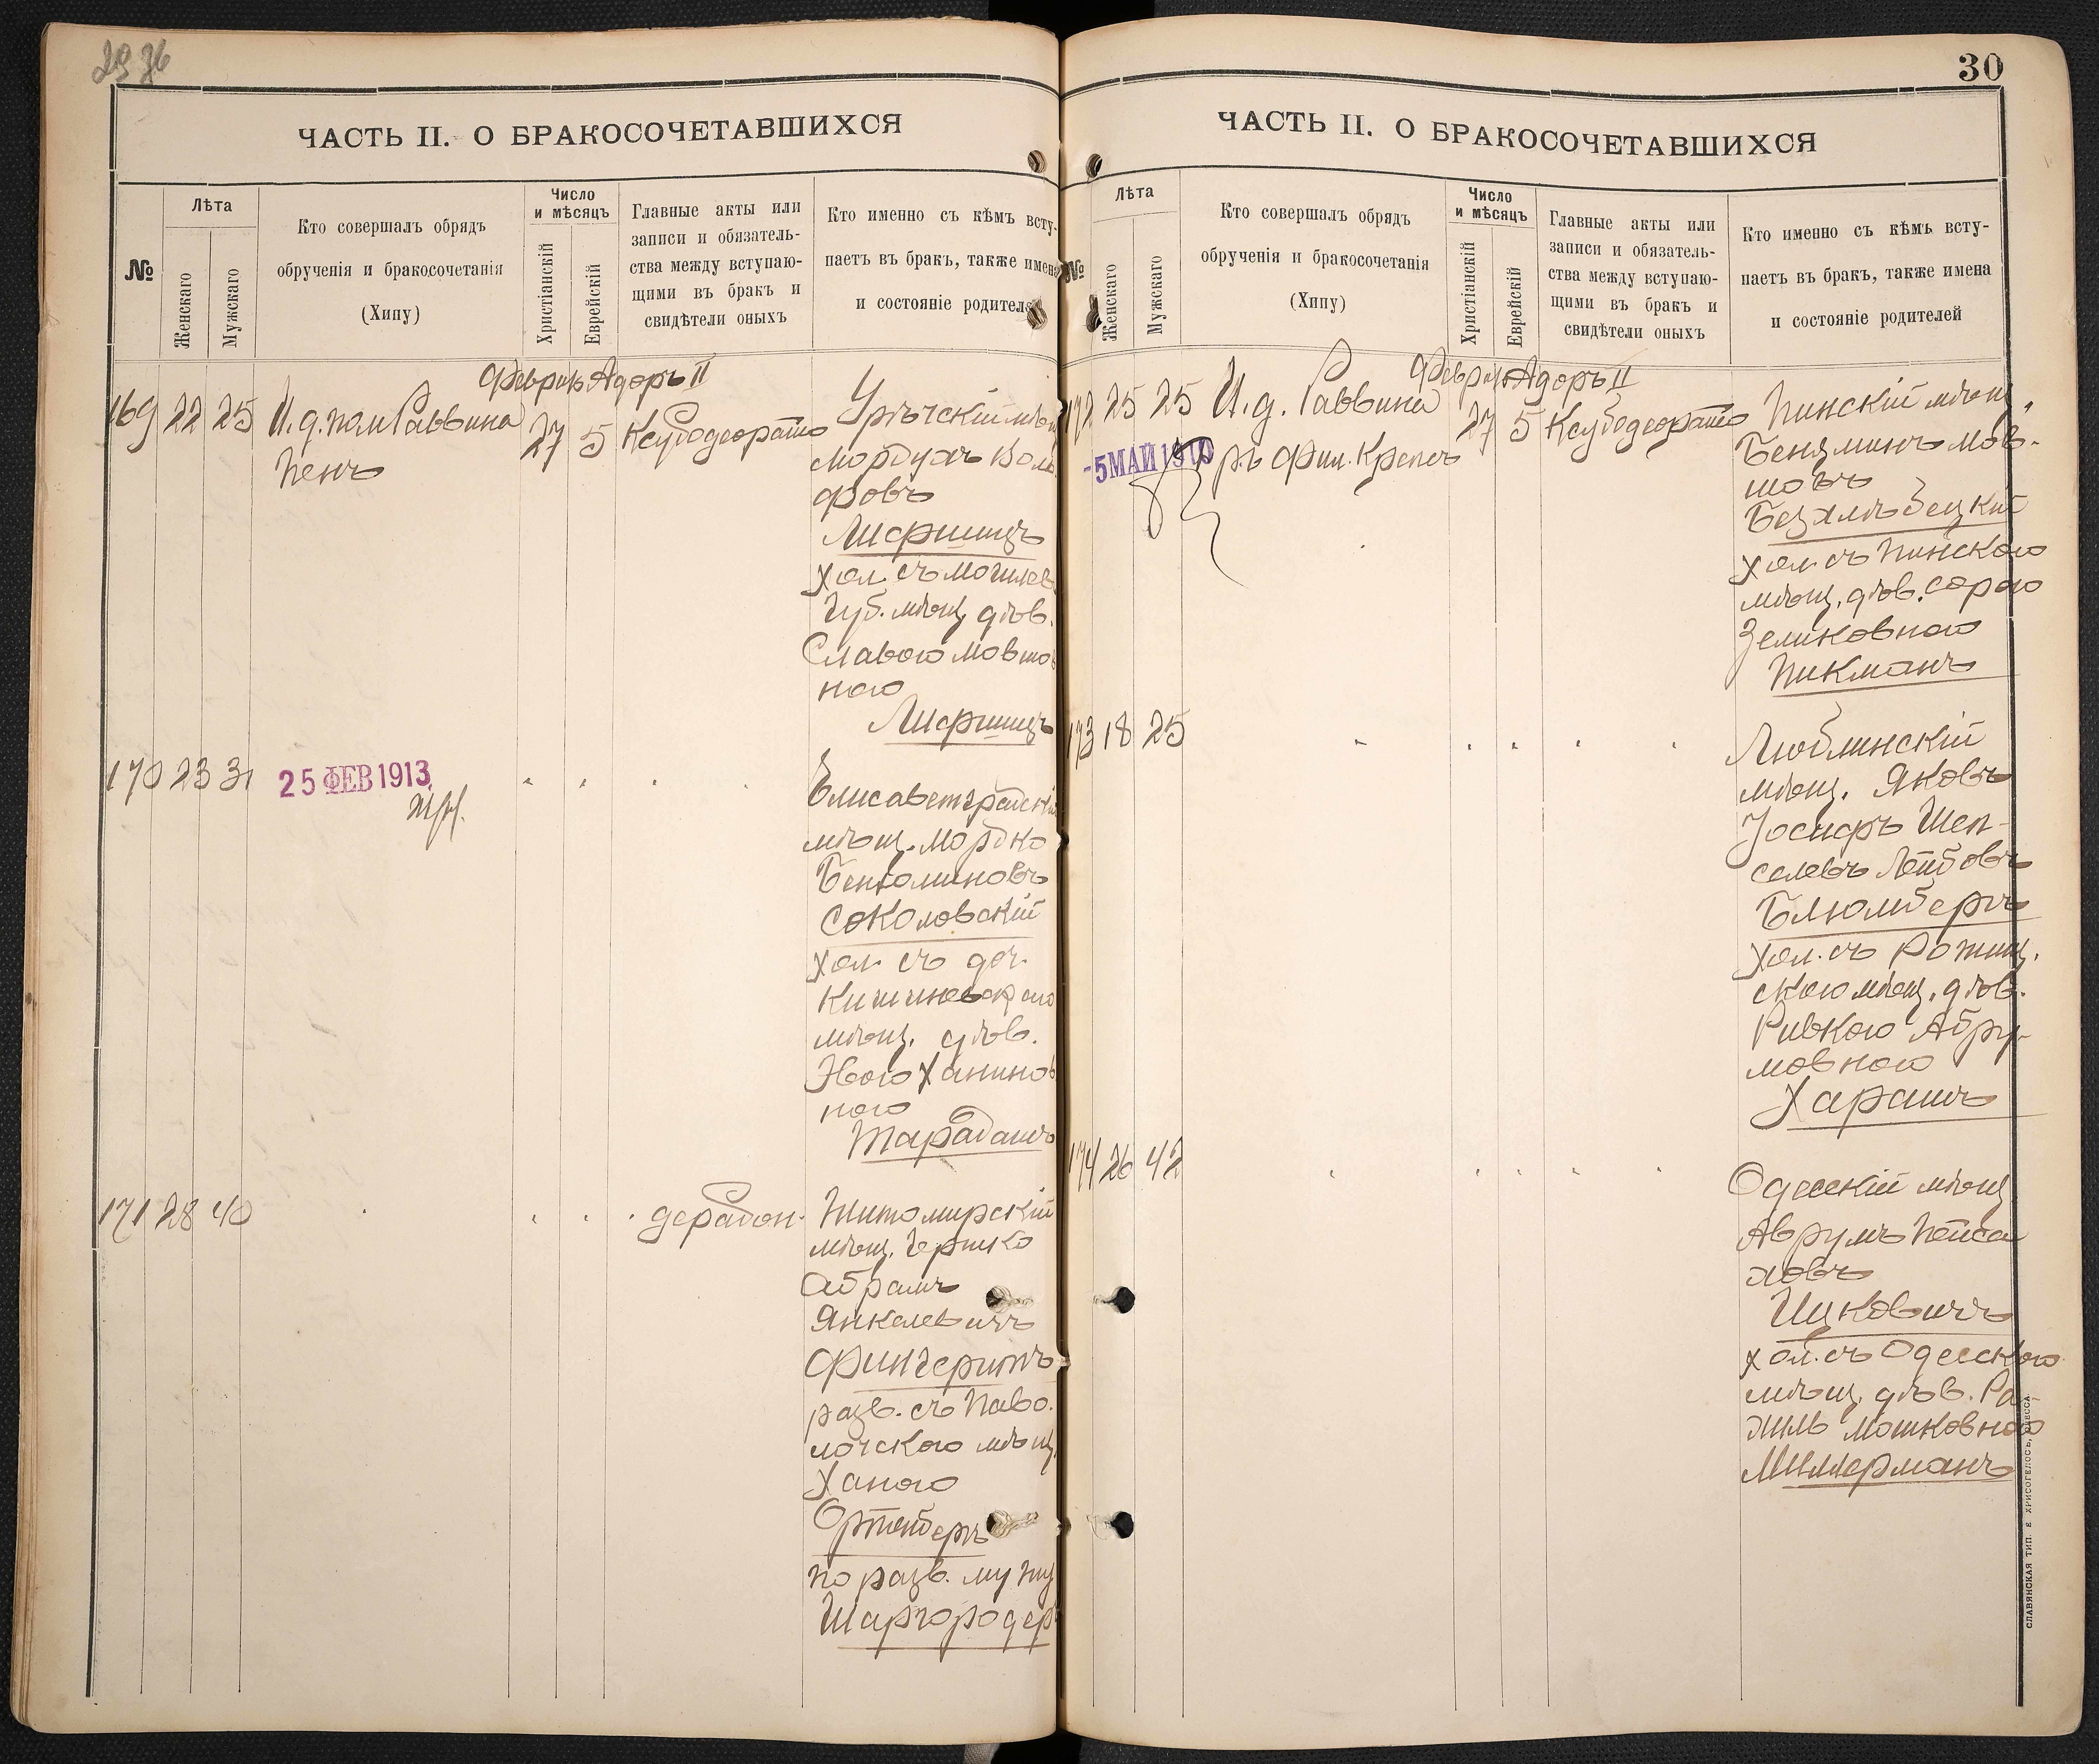 29 36
ЧАСТЬ II. О БРАКОСОЧЕТАВШИХСЯ
№
Лѣта
Женскаго
Мужскаго
Кто совершалъ обрядъ
обрученія и бракосочетанія
(Хипу)
Число
и мѣсяцъ
Христіанскій
Еврейскій
Главные акты или
записи и обязатель-
ства между вступаю-
щими въ бракъ и
свидѣтели оныхъ
Кто именно съ кѣмъ всту-
паетъ въ бракъ, также имена
и состояніе родителей
Феврал Адоръ II
169 22 25 И. д. пом Раввина
Пенъ
27 5
Урѣчскій мѣщ
Мордухъ Воль
фовъ
Лифшицъ
хол. съ Могилев
губ. мѣщ. дѣв.
Славою Мовшов
ною
Лифшицъ
170 23 31
25 ФЕВ 1913
Елисаветградскій
мѣщ. Мордко
Беніоминовъ
Соколовскій
хол. съ доч.
Кишиневскаго
мѣщ. дѣв.
Эвою Ханинов
ною
Тарадашъ
171 28 40
Житомирскій
мѣщ. Гершко
Абрамъ
Янкелевичъ
Фингеритъ
разв. съ Паво-
лочскою мѣщ.
Ханою
по разв. мужу
Шаргородеръ
30
ЧАСТЬ II. О БРАКОСОЧЕТАВШИХСЯ
№
Лѣта
Женскаго
Мужскаго
Кто совершалъ обрядъ
обрученія и бракосочетанія
(Хипу)
Число
и мѣсяцъ
Христіанскій
Еврейскій
Главные акты или
записи и обязатель-
ства между вступаю-
щими въ бракъ и
свидѣтели оныхъ
Кто именно съ кѣмъ всту-
паетъ въ бракъ, также имена
и состояніе родителей
Феврал Адоръ II
172 25 25 И. д. Раввина
-5 МАЙ 1910
д-ръ Фил. Крепсъ
27 5
Пинскій мѣщ.
Беняминъ Мов-
шовъ
хол. съ Пинскою
мѣщ. дѣв. Сорою
Зеликовною
Пикманъ
173 18 25
Люблинскій
мѣщ. Яковъ
Іосифъ Шеп-
селевъ Лейбовъ
Блюмбергъ
хол. съ
скою мѣщ. дѣв.
Ривкою Абру-
мовною
Харашъ
174 26 42
Одесскій мѣщ
Аврумъ Пейса
ховъ
Ицковичъ
хол. съ Одесскою
мѣщ. дѣв. Ра-
хиль Мошковною
Миллерманъ
СЛАВЯНСКАЯ ТИП. Е. ХРИСОГЕЛОСЪ, ОДЕССА